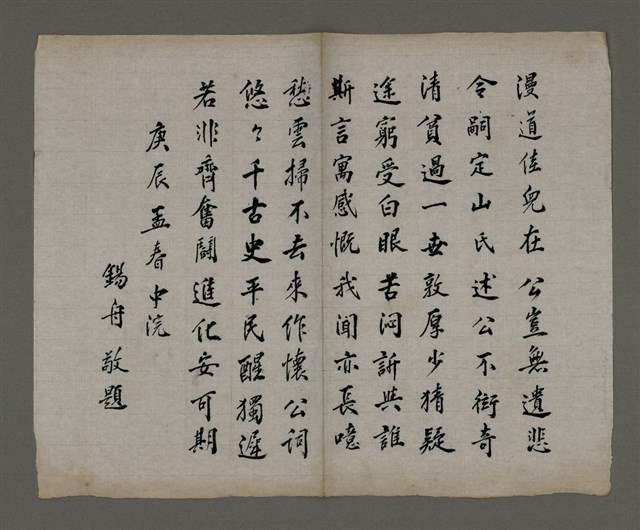 漫道佳兒在公豈無遺悲
令嗣定山氏述公不衒奇
清貧過一世敦厚少猜疑
途窮受白眼苦悶訴與誰
斯言寓感慨我聞亦長噫
愁雲掃不去來作懷公詞
悠々千古史平民醒獨遲
若非齊奮鬪進化安可期
庚辰孟春中浣
錫舟敬題